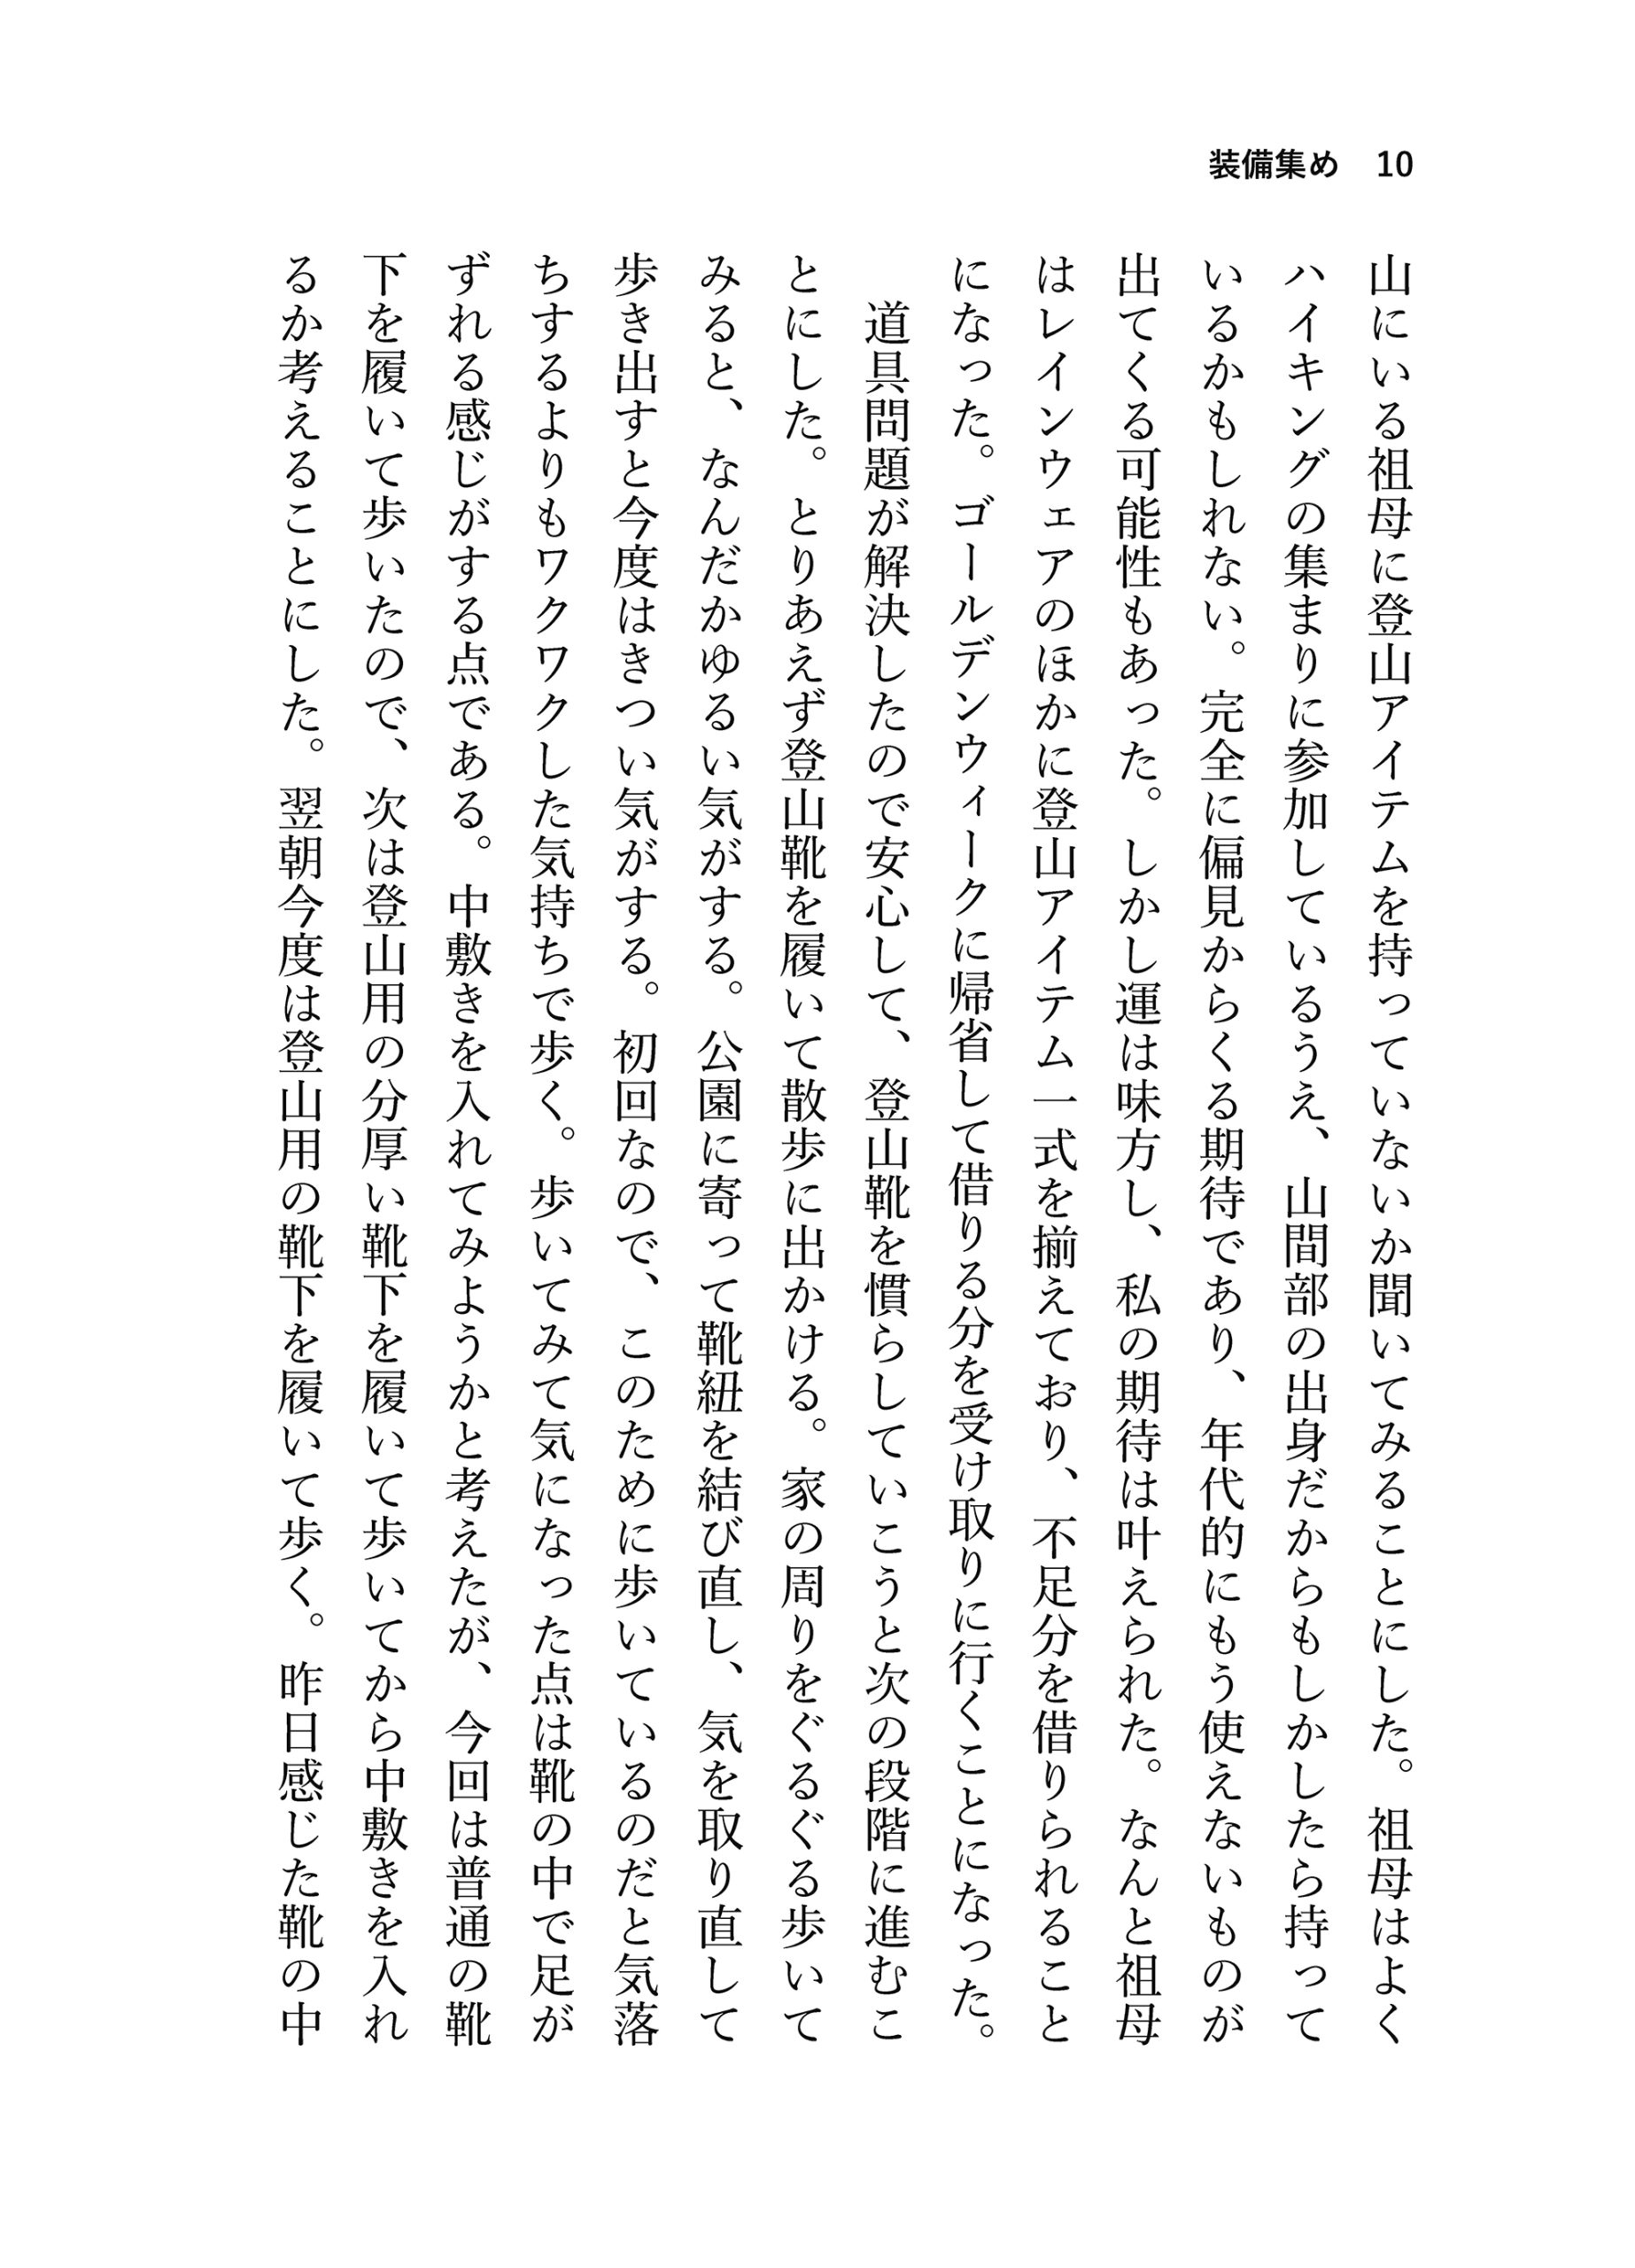 装備集め 10
山にいる祖母に登山アイテムを持っていないか聞いてみることにした。祖母はよく
ハイキングの集まりに参加しているうえ、山間部の出身だからもしかしたら持って
いるかもしれない。完全に偏見からくる期待であり、年代的にもう使えないものが
出てくる可能性もあった。しかし運は味方し、私の期待は叶えられた。なんと祖母
はレインウェアのほかに登山アイテム一式を揃えており、不足分を借りられること
になった。ゴールデンウィークに帰省して借りる分を受け取りに行くことになった。
道具問題が解決したので安心して、登山靴を慣らしていこうと次の段階に進むこ
とにした。とりあえず登山靴を履いて散歩に出かける。家の周りをぐるぐる歩いて
みると、なんだかゆるい気がする。公園に寄って靴紐を結び直し、気を取り直して
歩き出すと今度はきつい気がする。初回なので、このために歩いているのだと気落
ちするよりもワクワクした気持ちで歩く。歩いてみて気になった点は靴の中で足が
ずれる感じがする点である。中敷きを入れてみようかと考えたが、今回は普通の靴
下を履いて歩いたので、次は登山用の分厚い靴下を履いて歩いてから中敷きを入れ
るか考えることにした。翌朝今度は登山用の靴下を履いて歩く。昨日感じた靴の中